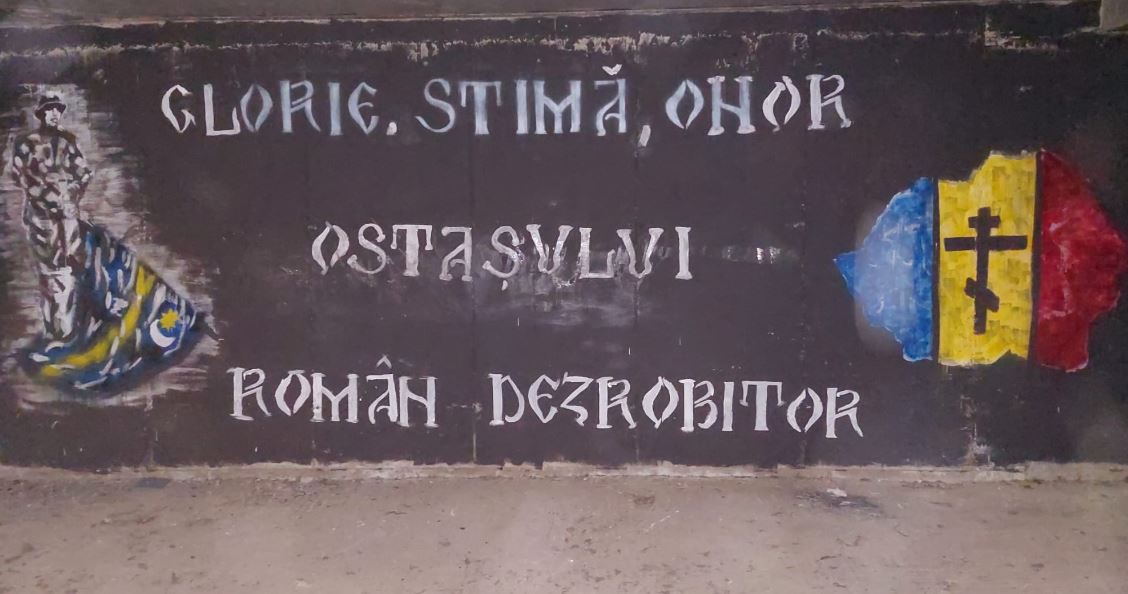 GLORIE, STIMĂ, ONOR
OSTAȘULUI
ROMÂN DEZROBITOR